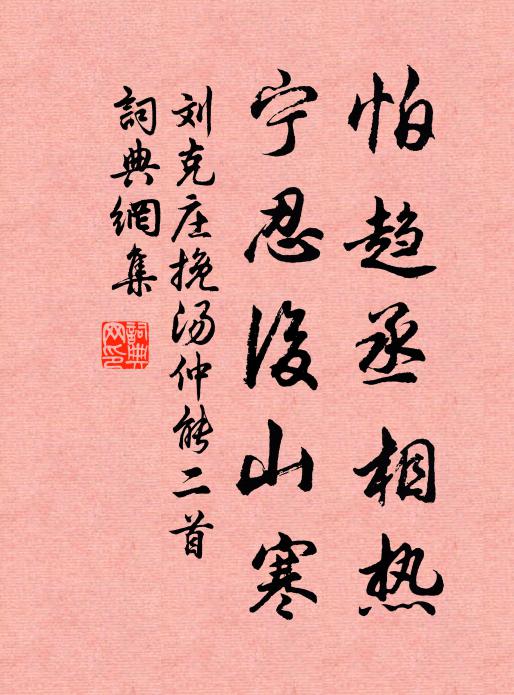 怕趋丞相热
宁忍后山寒
刘克庄挽汤仲能二首
詞典網集
詞典网印